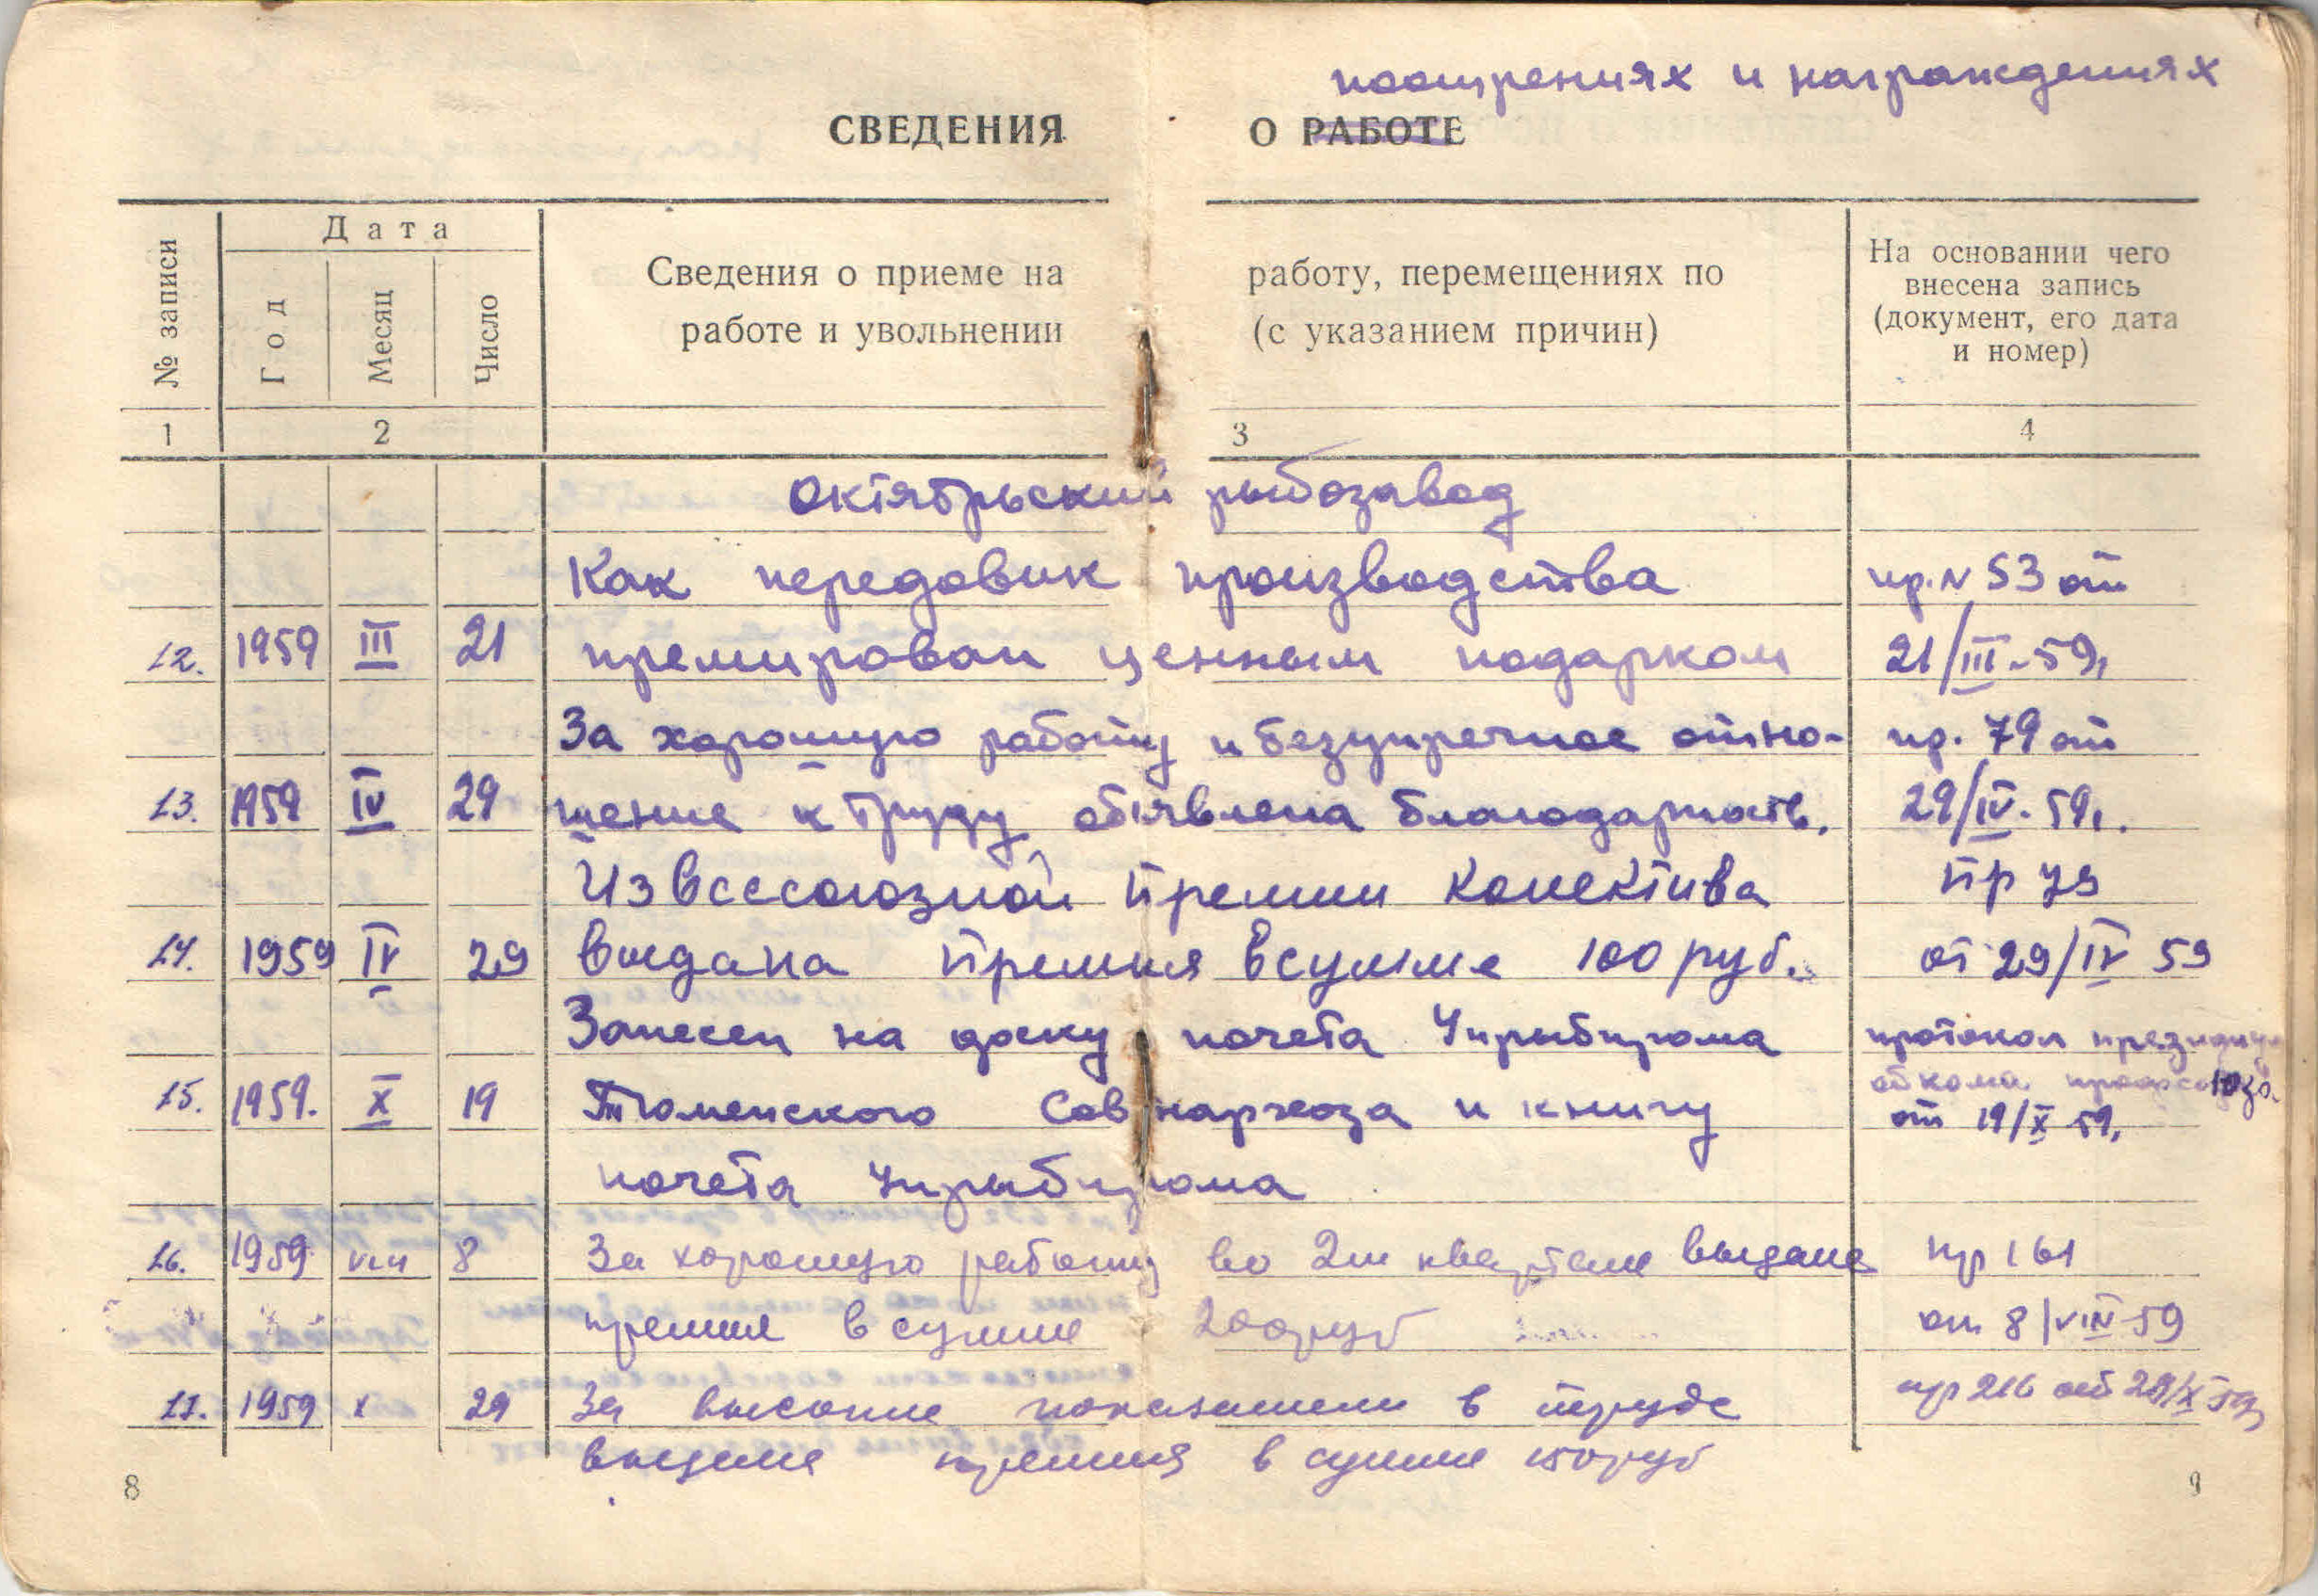 поощрениях и награждениях
СВЕДЕНИЯ О РАБОТЕ
№ записи
Дата
Год
Месяц
Число
Сведения о приеме на работу, перемещениях по
работе и увольнении (с указанием причин)
На основании чего
внесена запись
(документ, его дата
и номер)
1 2 3 4
Октябрьский рыбозавод
Как передовик производства пр. N 53 от
12. 1959 III 21 премирован ценным подарком 21/III-59г
За хорошую работу и безупречное отно- пр. 79 от
13. 1959 IV 29 шение к труду объявлена благодарность. 29/IV-59г.
Из всесоюзной премии колектива Пр 79
14. 1959 IV 29 выдана премия в сумме 100 руб. от 29/IV 59
Занесен на доску почета Упрыбпрома протокол президиума
15. 1959. X 19 Тюменского Совнархоза и книгу обкома профсоюза
от 19/X 59г
почета Упрыбпрома
16. 1959 VIII 8 За хорошую работу во 2м квартале выдана пр 161
премия в сумме 200руб от 8/VIII-59
17. 1959 X 29 За высокие показатели в труде пр 216 от 29/X 59г
выдана премия в сумме 150руб
8 9